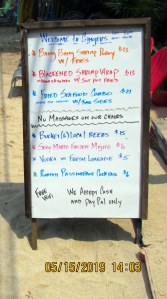 Welcome to Gingers
Bang Bang Shrimp Basket $13
w/ Fries
Blackened Shrimp Wrap $13
w/ Fries
Fried Seafood Combo $23
w/ Two Sides
No Massages on our chairs
Bucket (6) Local Beers $15
Frozen Mojito $6
Vodka w/ Fresh Lemonade $5
Passionfruit $6
Free
WiFi
We Accept Cash
and PayPal Only
05/15/2019 14:03